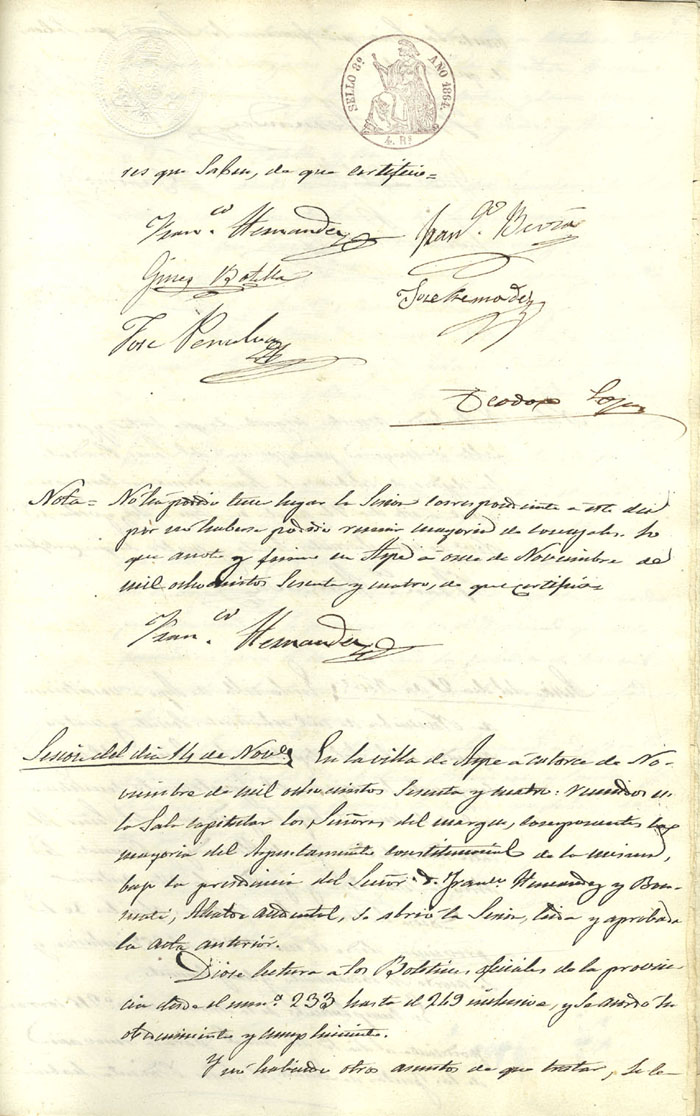 SELLO 3º AÑO 1864.
4. Rs
res que Saben, de que certifico=
Franco. Hernandez Frango.
Gines Botella
Jose
Jose Penalva
Teodoro Lopez
Nota= No ha podido tener lugar la Sesion correspondiente a este dia
por no haberse podido reunir mayoria de concejales. Lo
que anoto y firmo en Aspe á once de Noviembre de
mil ochocientos Sesenta y cuatro, de que certifico
Franco. Hernandez
Sesion del dia 14 de Nove. En la villa de Aspe á catorce de No-
viembre de mil ochocientos Sesenta y cuatro: reunidos en
la Sala capitular los Señores del margen, componentes la
mayoria del Ayuntamiento constitucional de la misma,
bajo la presidencia del Señor D. Franco. Hernandez y Bon-
mati, Alcalde accidental, se abrió la Sesion, leida y aprobada
la acta anterior.
Diose lectura á los Boletines oficiales de la provin-
cia desde el numo. 233 hasta el 249 inclusive, y se acordó su
obedecimiento y cumplimiento.
Y no habiendo otros asuntos de que tratar, se le-